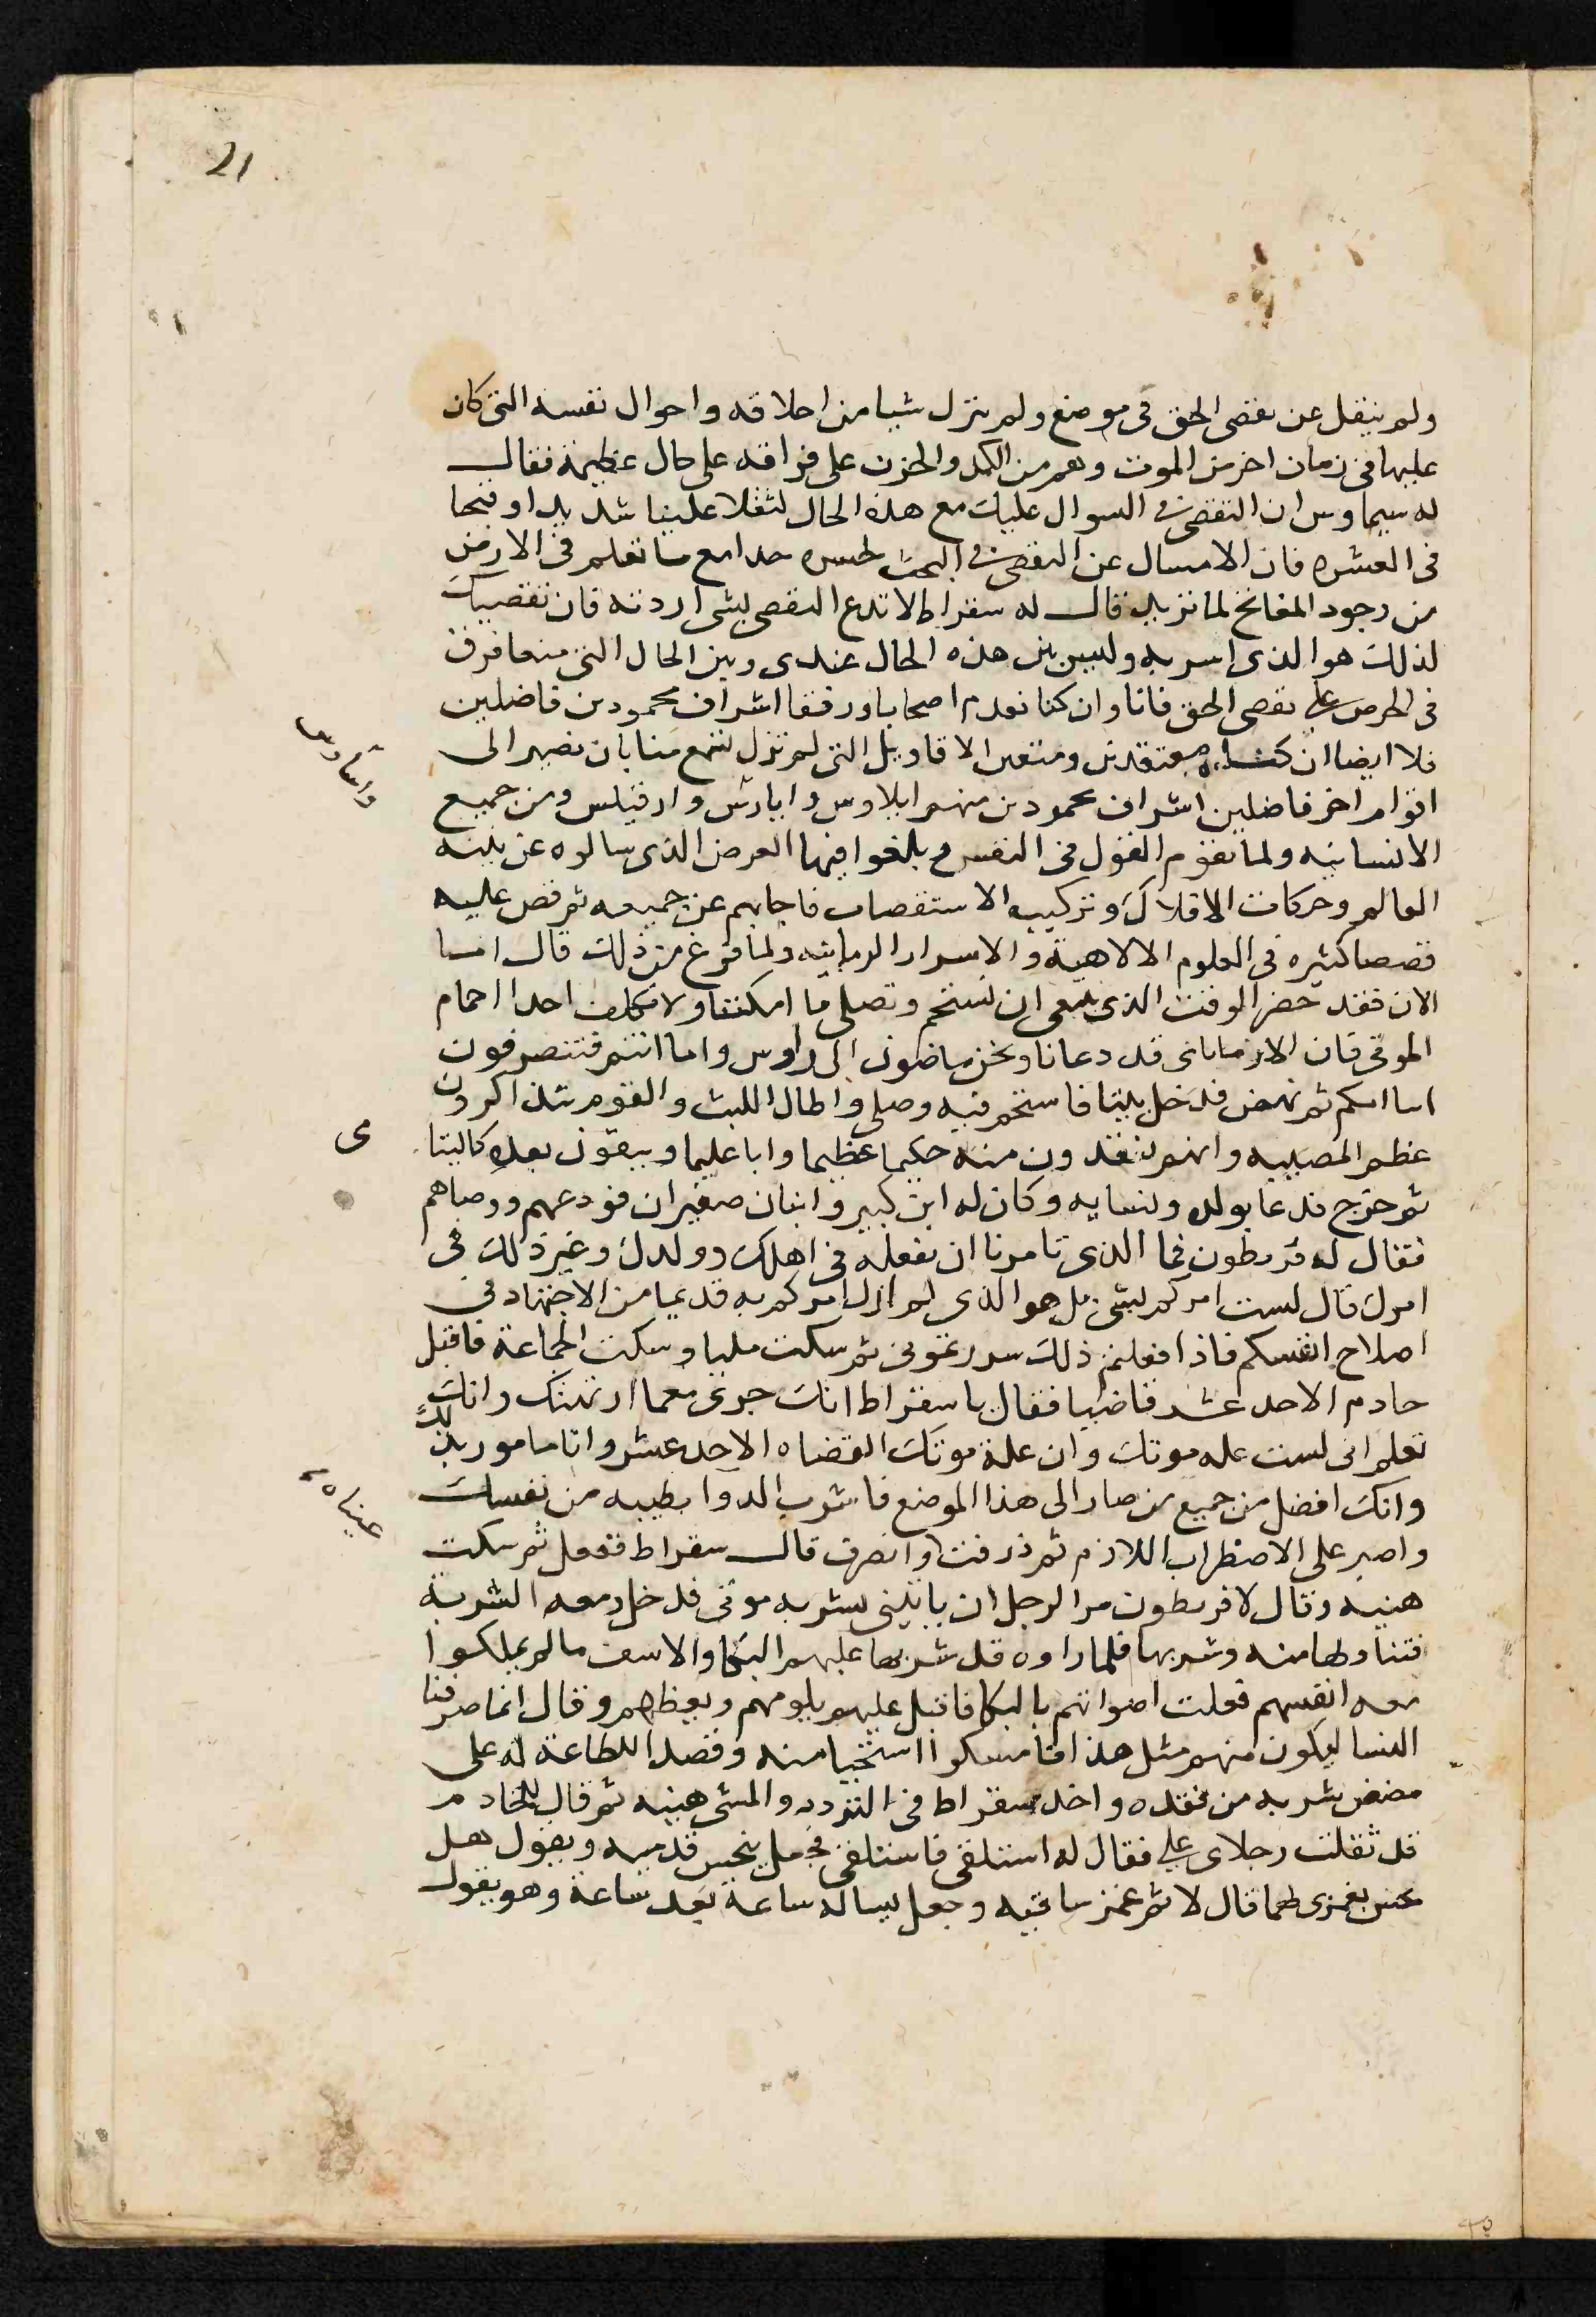 21
ولم ينقل عن تقصى الحق فى موضع ولم يترك شيا من اخلاقه واحوال نفسه التى كان
عليها فى زمان اخر من الموت وهم من الكمد والحزن على فراقه على حال عظيمة فقال
له سيماوس ان التقصى فى السوال عليك مع هذه الحال لثقلا علينا شديدا وقبحا
فى العشره فان الامساك عن التقصى فى البحث لحسره غدا مع ما نعلم فى الارض
من وجود المفاتح لما نريد قال له سقراط لا تدع التقصى لشى اردته فان تقصيك
لذلك هو الذى اسر به وليس بين هذه الحال عندى وبين الحال التى منها فرق
فى الحرص على تقصى الحق فانا وان كنا نعدم اصحابا ورفقا اشراف محمودين فاضلين
فلا ايضا ان كنا معتقدين ومتقين الاقاويل التى لم تزل تسمع منا بان نصير الى
اقوام اخر فاضلين اشراف محمودين منهم ايلاوس وايارس وارقيلس ومن جميع
واساوىها
الانسانيه ولما تقوم القول فى النفس وبلغوا فيها الغرض الذى سالوه عن بنية
العالم وحركات الافلاك وتركيب الاستقصات فاجابهم عن جميعه ثم قص عليه
قصصا كثيره فى العلوم الالاهية والاسرار الربانيه ولما فرغ من ذلك قال اما
الان فقد حضر الوقت الذى ينبغى ان نستحم ونصلى ما امكننا ولا نكلف احدا احمام
الموتى فان الارمامانى قد دعانا ونحن ماضون الى زاوس واما انتم فتنصرفون
اما اليكم ثم نهض فدخل بيتا فاستحم فيه وصلى واطال اللبث والقوم يتذاكرون
عظم المصيبه وانهم يفقدون منه حكيما عظيما وابا عليما ويبقون بعده كاليتا
مى
ثم خرج فدعا بولده ونسايه وكان له ابن كبير وابنان صغيران فودعهم ووصاهم
فقال له قريطون فما الذى تامرنا ان نفعله فى اهلك وولدك وغير ذلك فى
امرك قال لست امركم بشى بل هو الذى لم ازل امركم به قديما من الاجتهاد فى
اصلاح انفسكم فاذا فعلتم ذلك سررتمونى ثم سكت مليا وسكت الجماعة فاقبل
خادم الاحد عشر قاضيا فقال يا سقراط انك جرى معما ارى منك وانك
تعلم انى لست عله موتك وان علة موتك القضاه الاحد عشر وانا مامور بذلك
وانك افضل من جميع من صار الى هذا الموضع فاشرب الدوا بطيبه من نفسك
واصبر على الاضطراب اللازم ثم ذرفت وانصرف قال سقراط نفعل ثم سكت
عيناه
هنيه وقال لاقريطون مر الرجل ان ياتينى بشربه موتى فدخل ومعه الشربة
فتناولها منه وشربها فلما راوه قد شربها عليهم البكا والاسف مالم يملكوا
معه انفسهم فعلت اصواتهم بالبكا فاقبل عليهم يلومهم ويعظهم وقال انما صرفنا
النسا ليكون منهم مثل هذا فامسكوا استحيا منه وقصد اللطاعة له على
مضض شربه من فقده واخذ سقراط فى التردد والمشى هنيه ثم قال للخادم
قد ثقلت رجلاى على فقال له استلقى فاستلقى فجعل يجس قدميه ويقول هل
تحس بغمزى لهما قال لا ثم غمز ساقيه وجعل يساله ساعة بعد ساعة وهو يقول